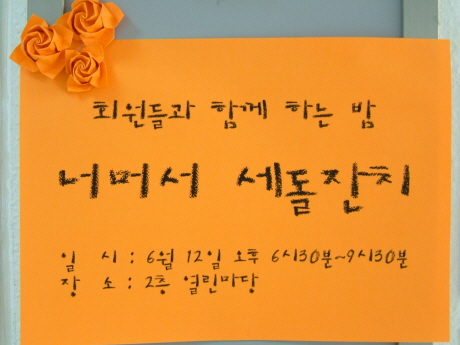 회원들과 함께 하는 밤
너머서 세돌잔치
일 시 : 6월 12일 오후 6시30분~9시30분
장 소 : 2층 열린마당